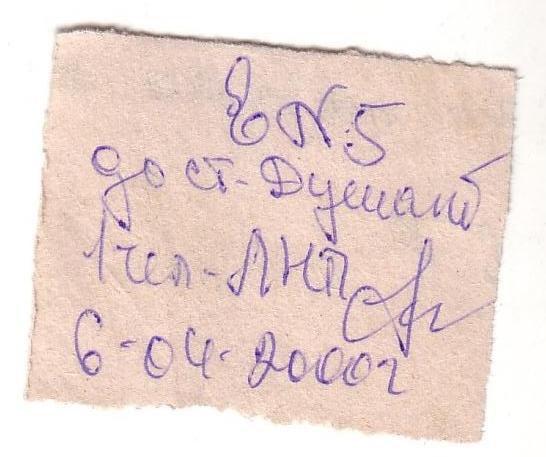 Е №5
дост-Душанб
1чел-ЛНП
6-04-2000г